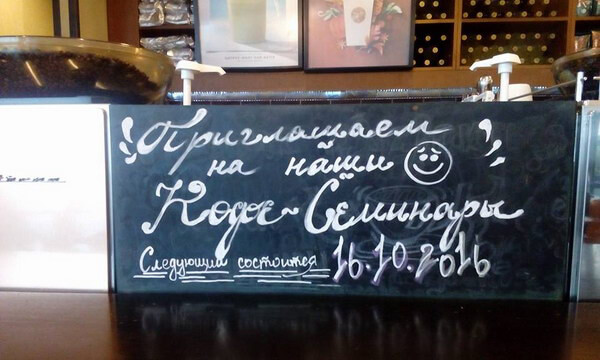 Приглашаем
на наши
Кофе-Семинары
Следующий состоится 16.10.2016